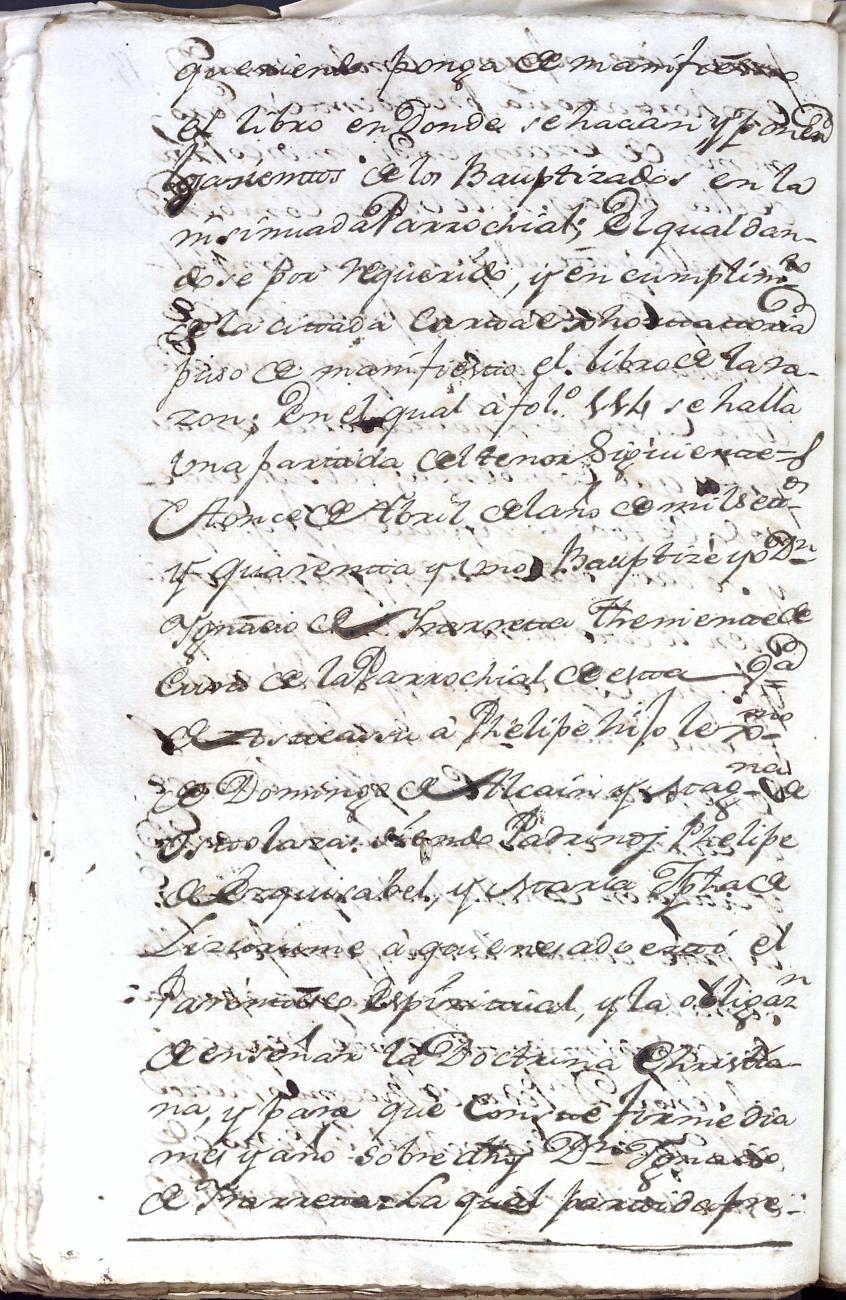 queriendo ponga de manifiesto
el libro en Donde se hacian y ponen
asientos de los Bauptizados en la
insinuada Parrochial; El qual dan-
dose por requerido, y en cumplim.to
de la citada Carta exhortatoria
puso de manifiesto el libro de la ra-
zon; En el qual á fol.o 114 se halla
Una partida del tenor Siguiente=
A once de Abril del año de mil setz.
y quarenta y uno, Bauptizè yo Dn
Ygnacio de Ybarreta Theniente de
Cura de la Parrochial de esta
de Asteasu á Phelipe hijo legmo
de Domingo de Alcain y Magna de
Ysttolaza: siendo Padrinos Phelipe
de Erquizabel, y Maria Jpha de
Lizurume á quienes adverti el
Parentesco Espiritual, y la obligazn
de enseñar la Doctrina Christia-
na, y para que Conste firmé dia
mes y año sobre dhos Dn Ygnacio
de Ybarreta= La qual partida pre-